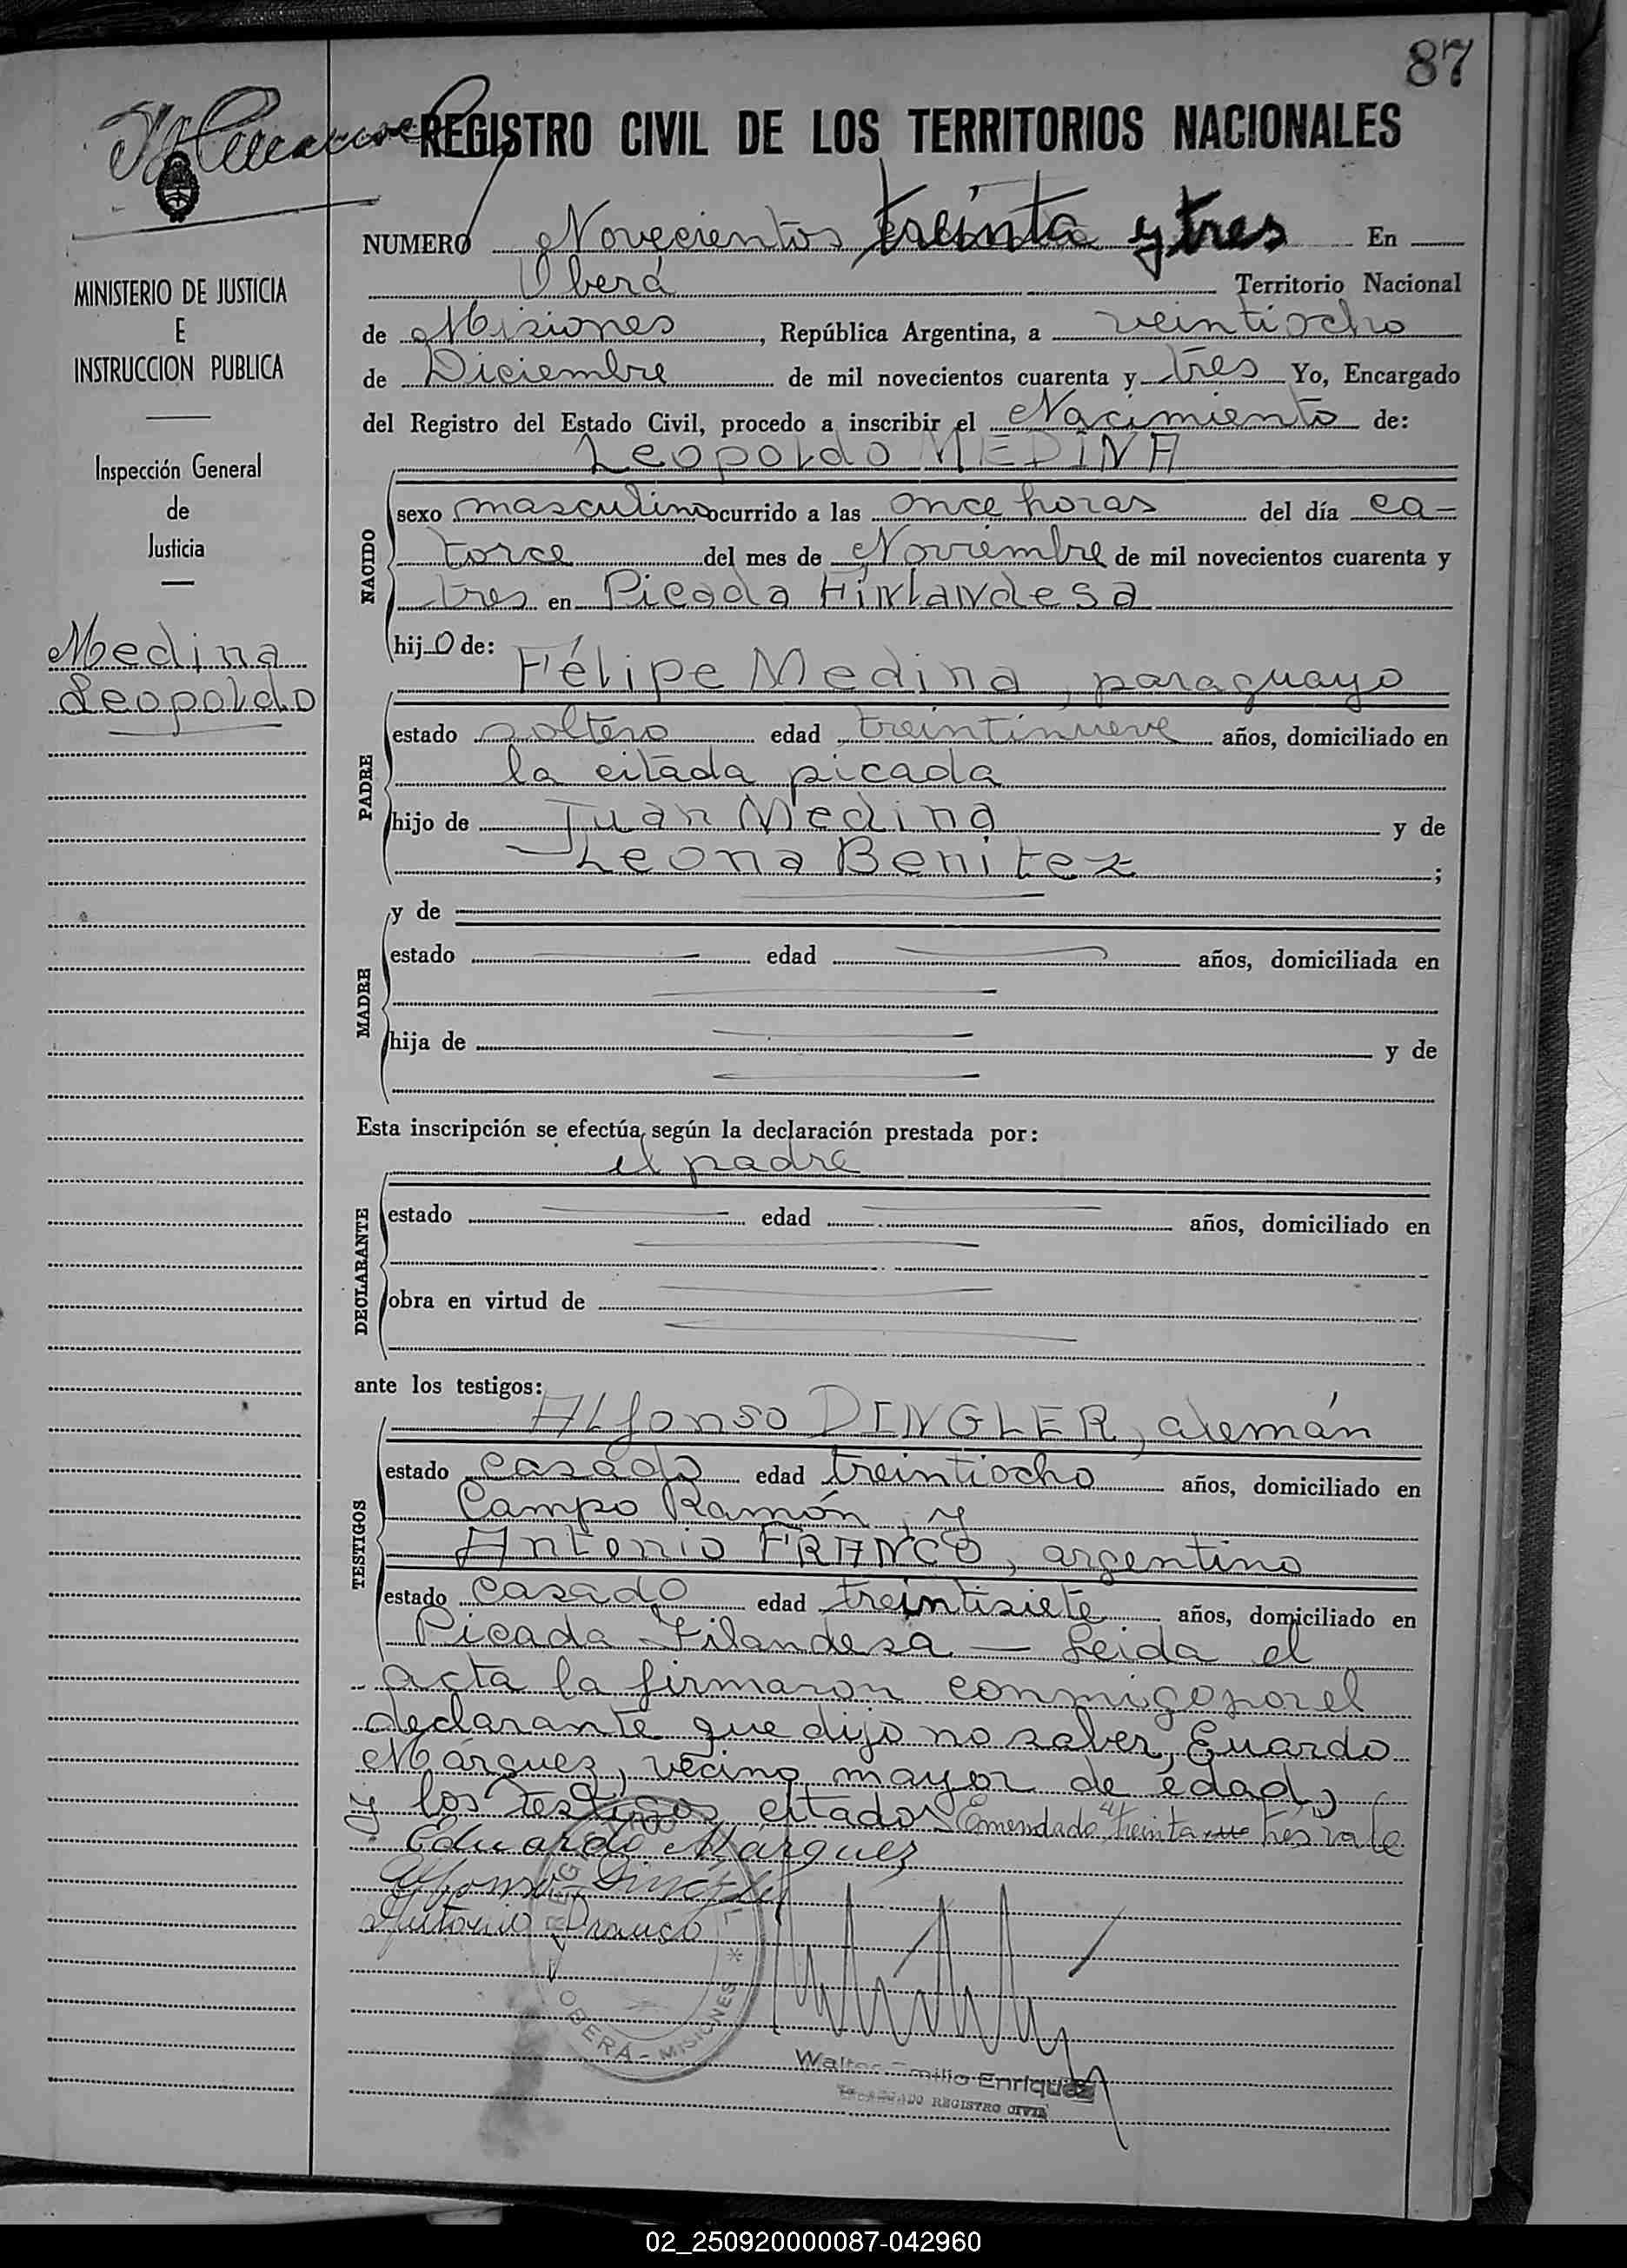 87
REGISTRO CIVIL DE LOS TERRITORIOS NACIONALES
NUMERO Novecientos treinta y tres En
Oberá Territorio Nacional
de Misiones, República Argentina, a veintiocho
de Diciembre de mil novecientos cuarenta y tres Yo, Encargado
del Registro del Estado Civil, procedo a inscribir el Nacimiento de:
Leopoldo MEDINA
NACIDO
sexo masculino ocurrido a las once horas del día ca-
torce del mes de Noviembre de mil novecientos cuarenta y
tres en Picada Finlandesa
hijo de:
Félipe Medina, paraguayo
PADRE
estado soltero edad treintinueve años, domiciliado en
la citada picada
hijo de Juan Medina y de
Leona Benitez ;
MADRE
y de
estado edad años, domiciliada en
hija de y de
Esta inscripción se efectúa, según la declaración prestada por:
el padre
DECLARANTE
estado edad años, domiciliado en
obra en virtud de
ante los testigos:
Alfonso DINGLER, alemán
TESTIGOS
estado casado edad treintiocho años, domiciliado en
Campo Ramón, y
Antonio FRANCO, argentino
estado casado edad treintisiete años, domiciliado en
Picada Filandesa — Leida el
acta la firmaron conmigo por el
declarante que dijo no saber, Euardo
Márquez, vecino mayor de édad,
y los testigos citados Enmendado "treinta tres vale
Eduardo Márquez
Alfonso Dingler
Antonio Franco
OBERA - MISIONES *
Walter Emilio Enriquez
ENCARGADO REGISTRO CIVIL
MINISTERIO DE JUSTICIA
E
INSTRUCCION PUBLICA
Inspección General
de
Justicia
Medina
Leopoldo
02_250920000087-042960